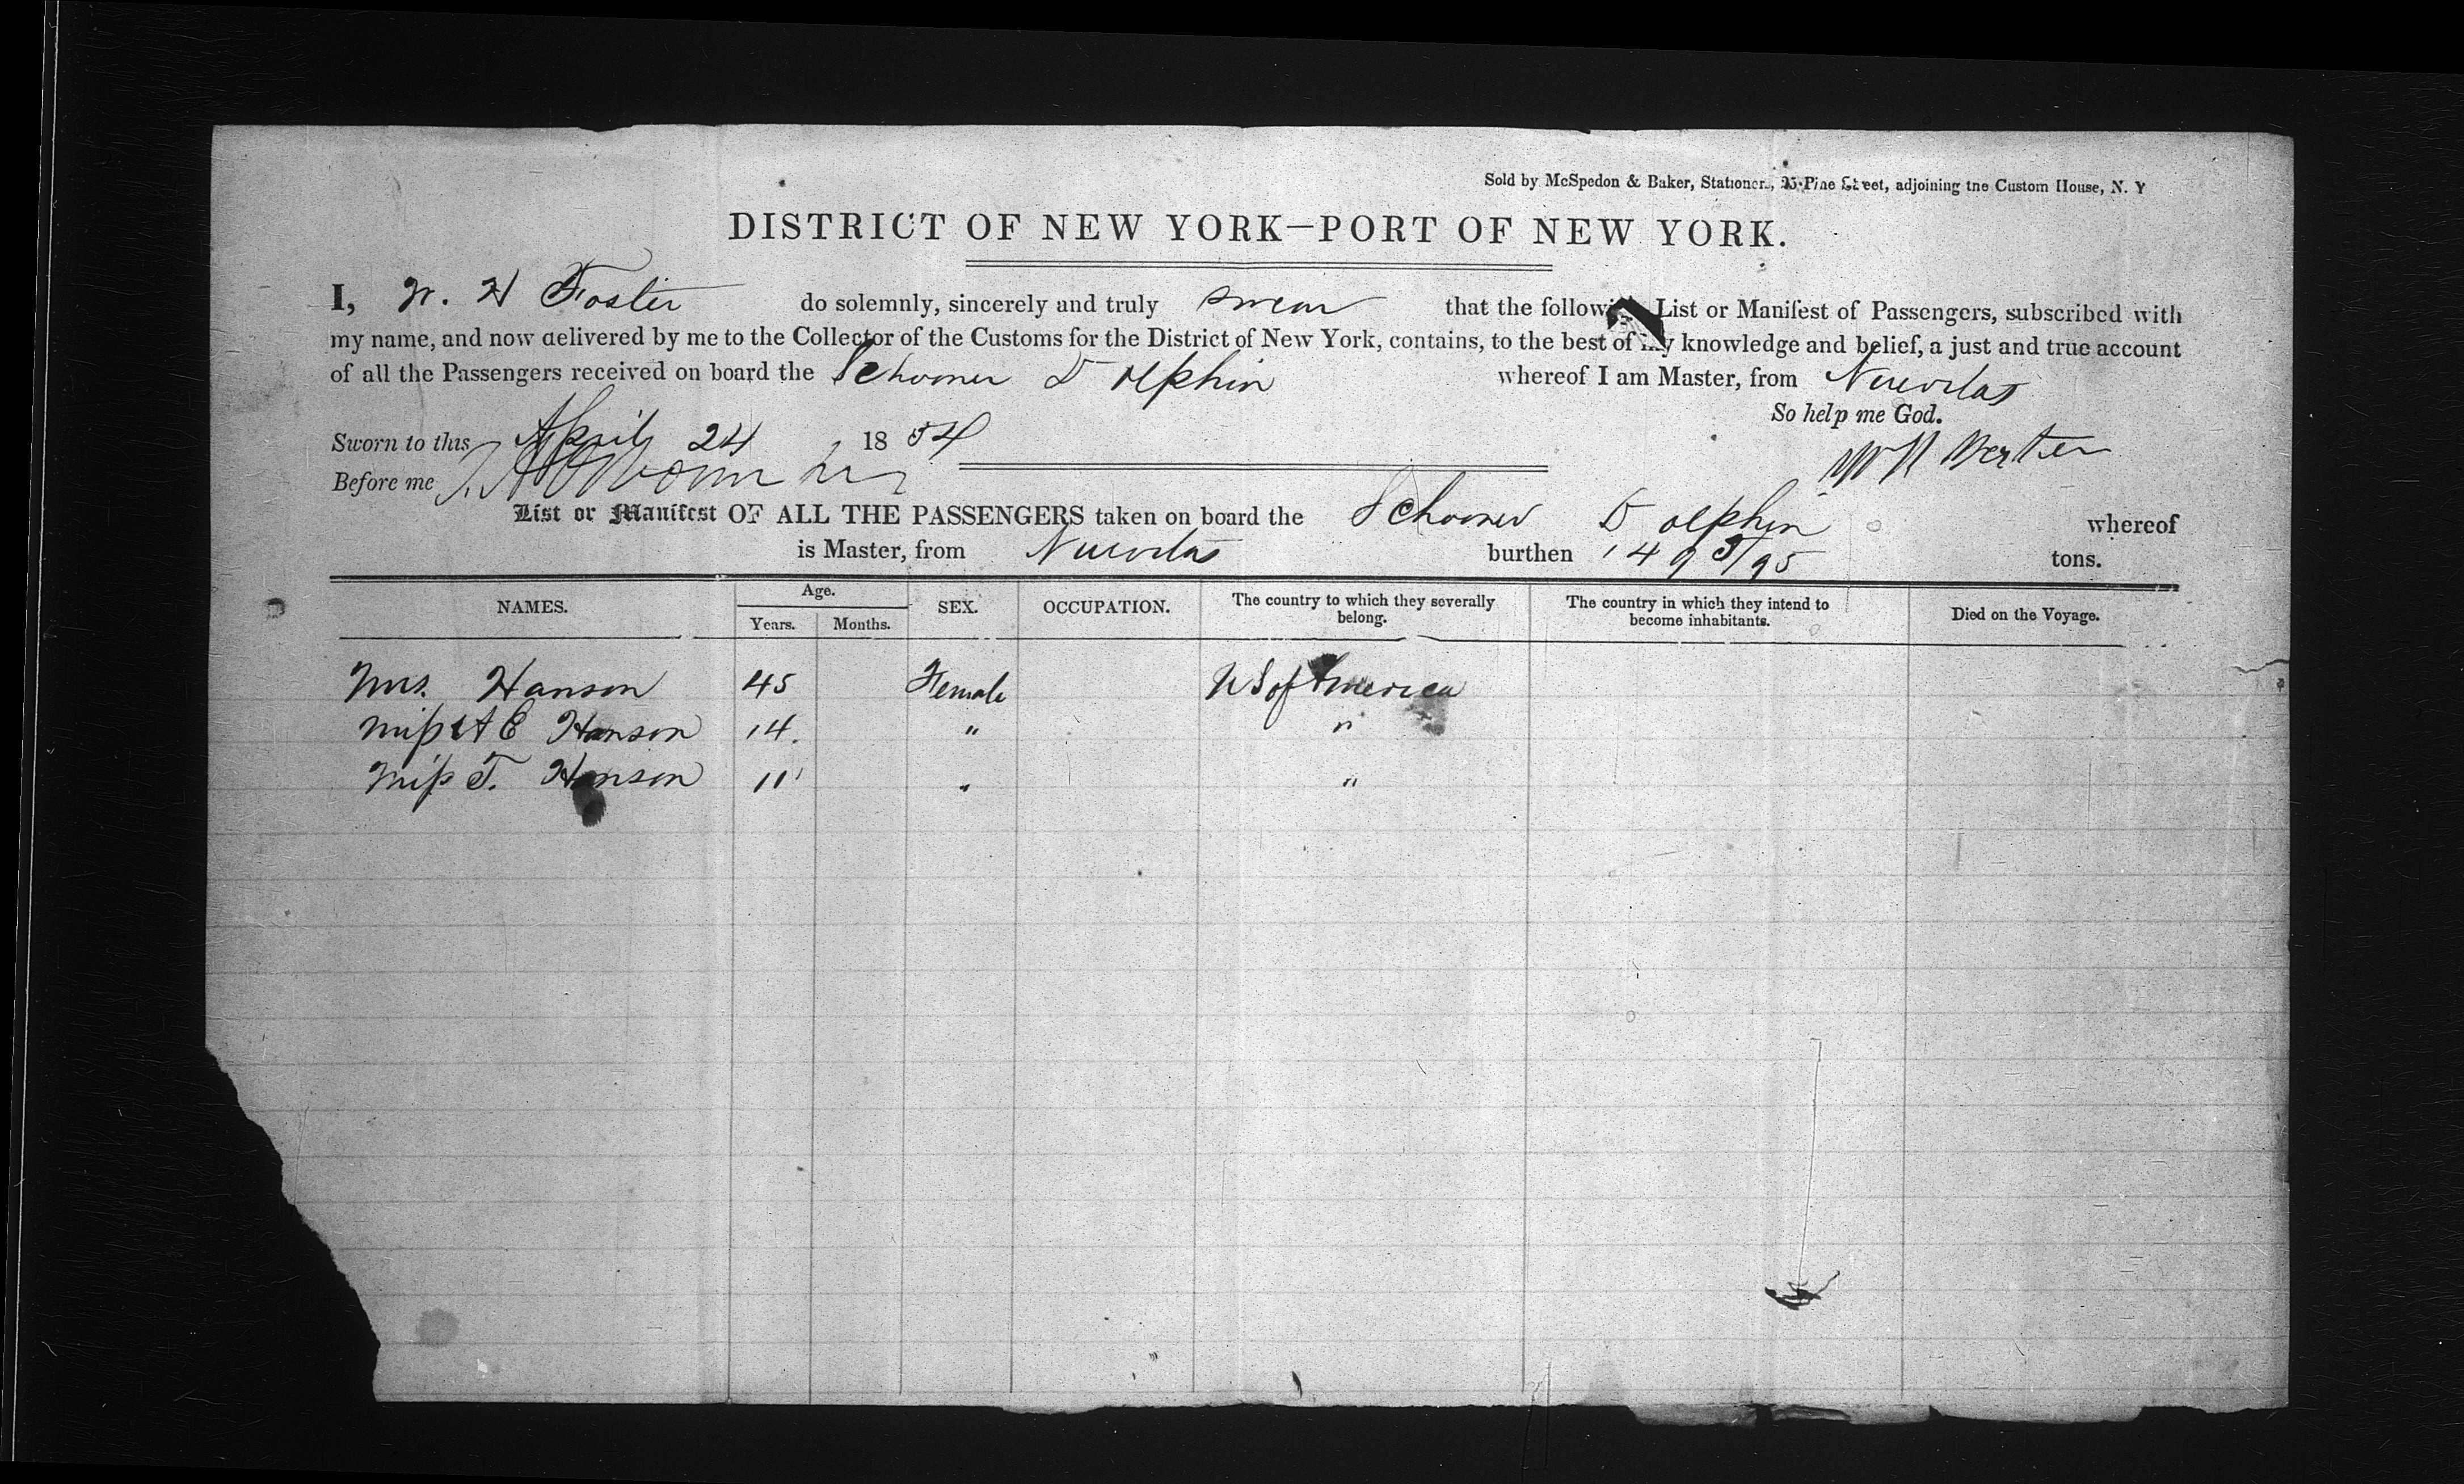 Sold by McSpedon & Baker, Stationers, 25 Pine Street, adjoining the Custom House, N. Y
DISTRICT OF NEW YORK—PORT OF NEW YORK.
I, W. H Foster do solemnly, sincerely and truly swear that the following List or Manifest of Passengers, subscribed with
my name, and now delivered by me to the Collector of the Customs for the District of New York, contains, to the best of my knowledge and belief, a just and true account
of all the Passengers received on board the Schooner Dolphin whereof I am Master, from Nuevitas
So help me God.
Sworn to this April 24 1854
Before me
W H
List or Manifest OF ALL THE PASSENGERS taken on board the Schooner Dolphin whereof
is Master, from Nuevitas burthen 149 5/95 tons.
NAMES. Age. Years. Months. SEX. OCCUPATION. The country to which they severally belong. The country in which they intend to become inhabitants. Died on the Voyage.
Mrs. Hanson 45 Female US of America
Miss A E Hanson 14. " "
Miss T. Hanson 11 " "